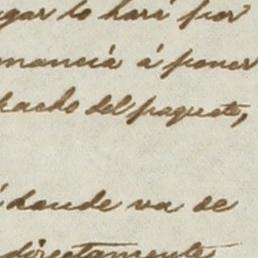 gar lo hará por
mancia á poner
pacho del paquete,
donde va se
directamente